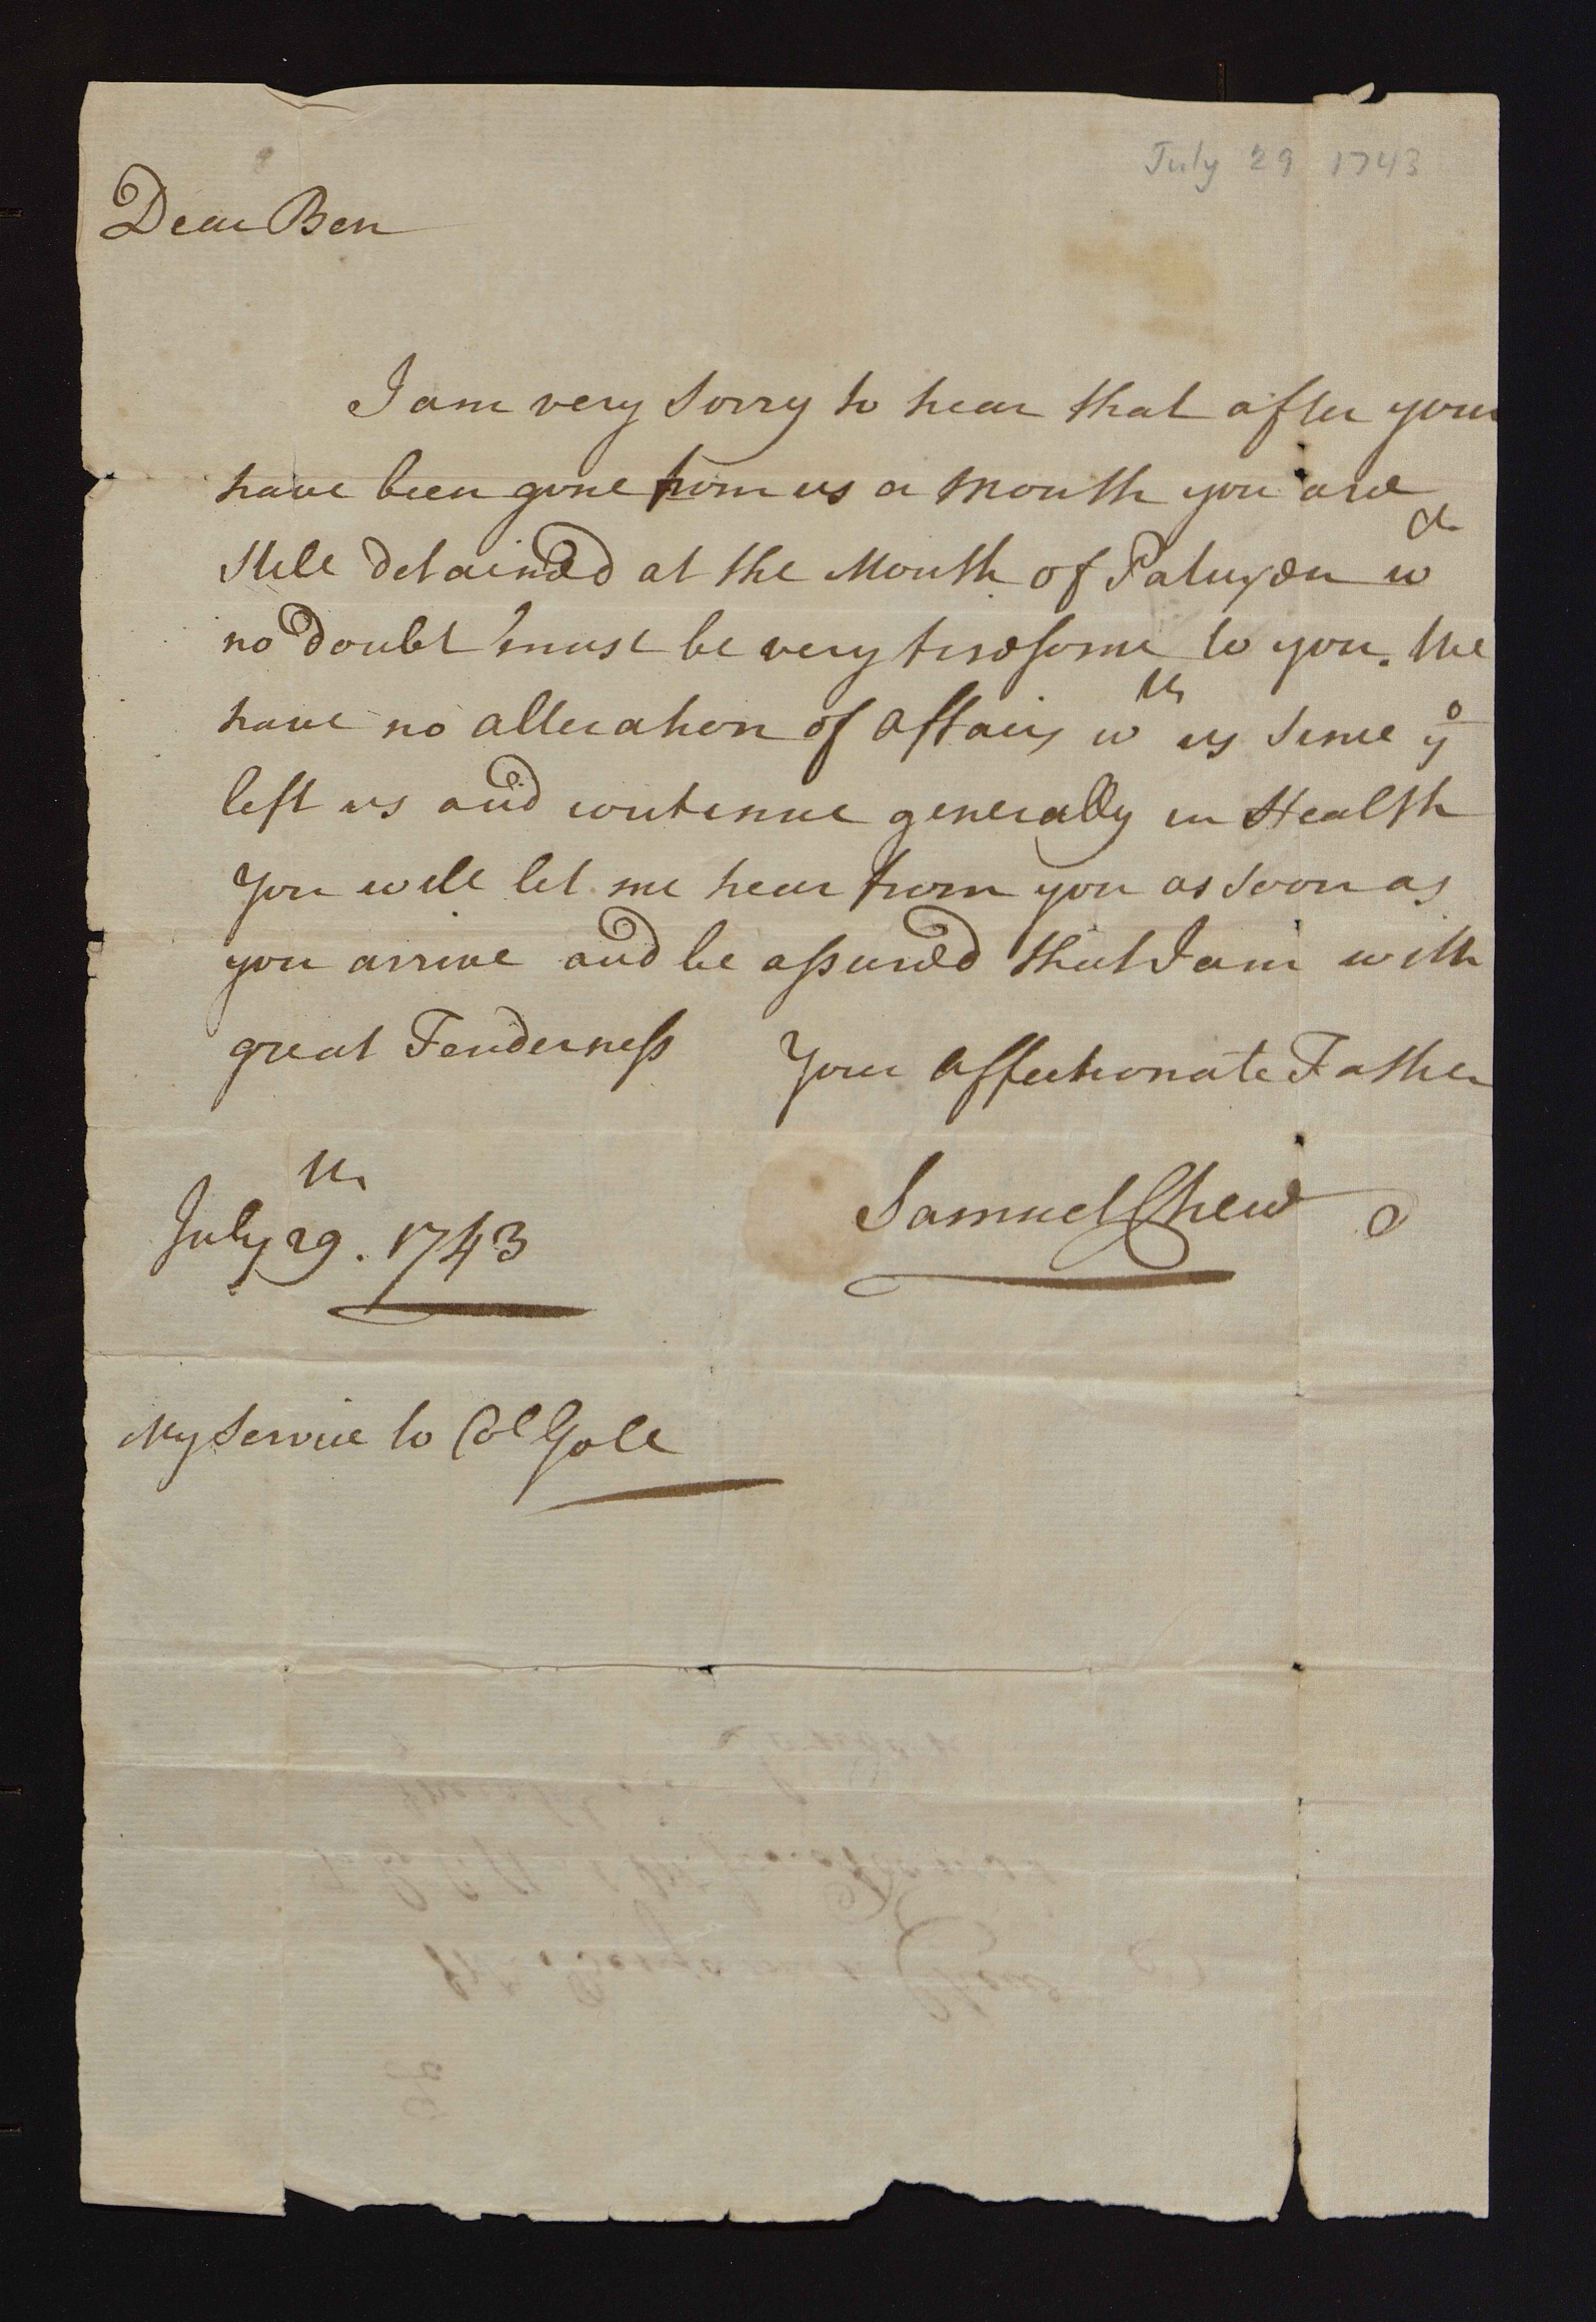 July 29 1743
Dear Ben
I am very sorry to hear that after your
have been gone from us a Month you are
still detained at the Mouth of Patuxen wch
no doubt must be very tiresome to you. We
have no alteration of affairs wth us since yo
left us and continue generally in Health
You will let me hear from you as soon as
you arrive and be assured that I am with
great Tenderness Your affectionate Father
July 29th. 1743
Samuel Chew
My Service to Col Gale
London
Mr Benjamin Chew